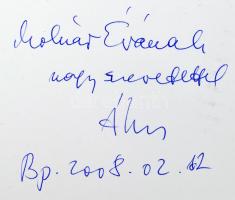 Molnár Évának
nagy szeretettel
Bp. 2008. 02. 12